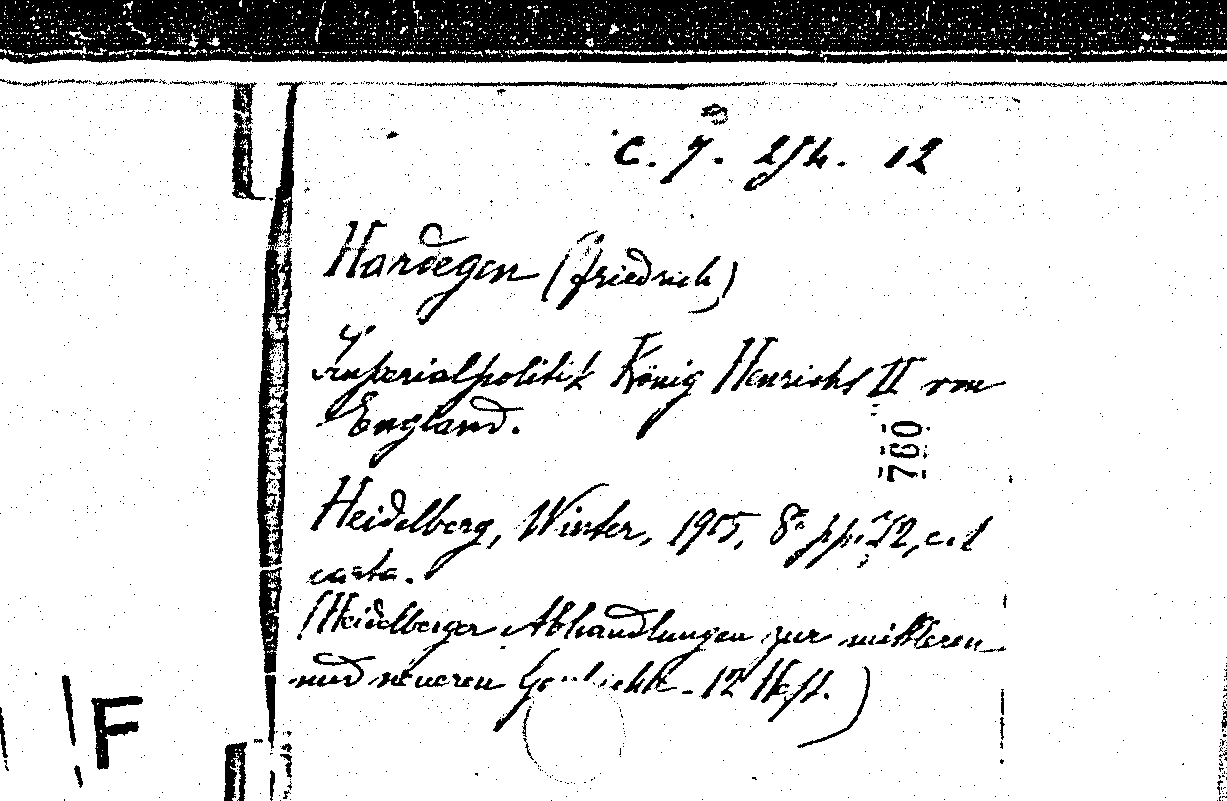 C. 7. 254. 12
Hardegen (Friedrich)
Imperialpolitik König Henrichs II von
England.
760
Heidelberg, Winter, 1905, 8° pp. 72, c. 1
carta.
(Heidelberger Abhandlungen zur mittleren
und neueren Geschichte - 12 Heft.)
F